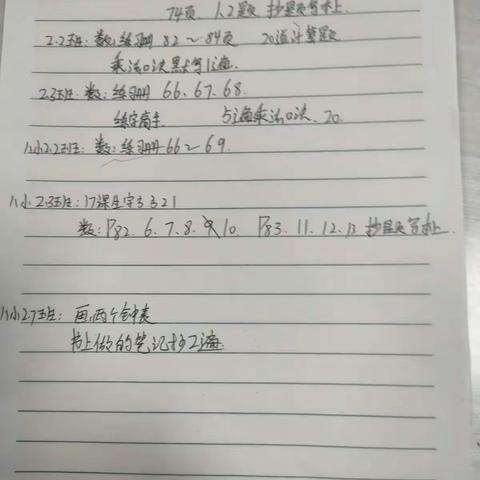 74页、1、2题 抄题写本上
2.2班：数：练习册 82～84页 20道计算题
乘法口诀默写1遍
2.3班：数：练习册 66、67、68.
练字高手 5遍乘法口诀、20.
八小2.2班：数：练习册 66～69.
八小2.3班：17课生字 3 3 2 1
数：P82. 6. 7. 8. 9 10. P83. 11. 12. 13 抄题写本上
八小2.7班：画两个钟表
书上做的笔记抄2遍